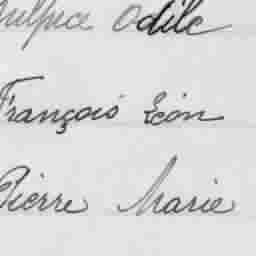 Sulpice Odile
François Léon
Pierre Marie